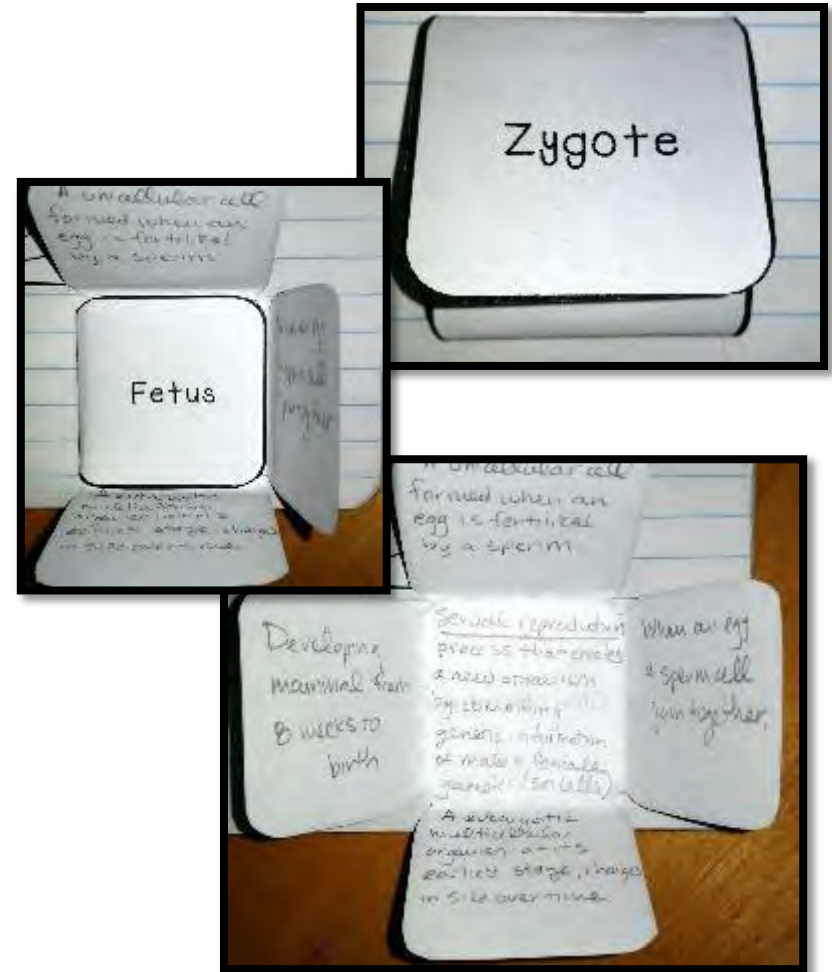 Zygote
A unicellular cell
formed when an
egg is fertilized
by a sperm
Fetus
A eukaryotic
multicellular
organism at its
earliest stage, changes
in size over time
A unicellular cell
formed when an
egg is fertilized
by a sperm
Developing
mammal from
8 weeks to
birth
Sexual reproduction
process that creates
a new organism
by combining
genetic information
of male & female
gametes (sex cells)
When an egg
& sperm cell
join together.
A eukaryotic
multicellular
organism at its
earliest stage, changes
in size over time